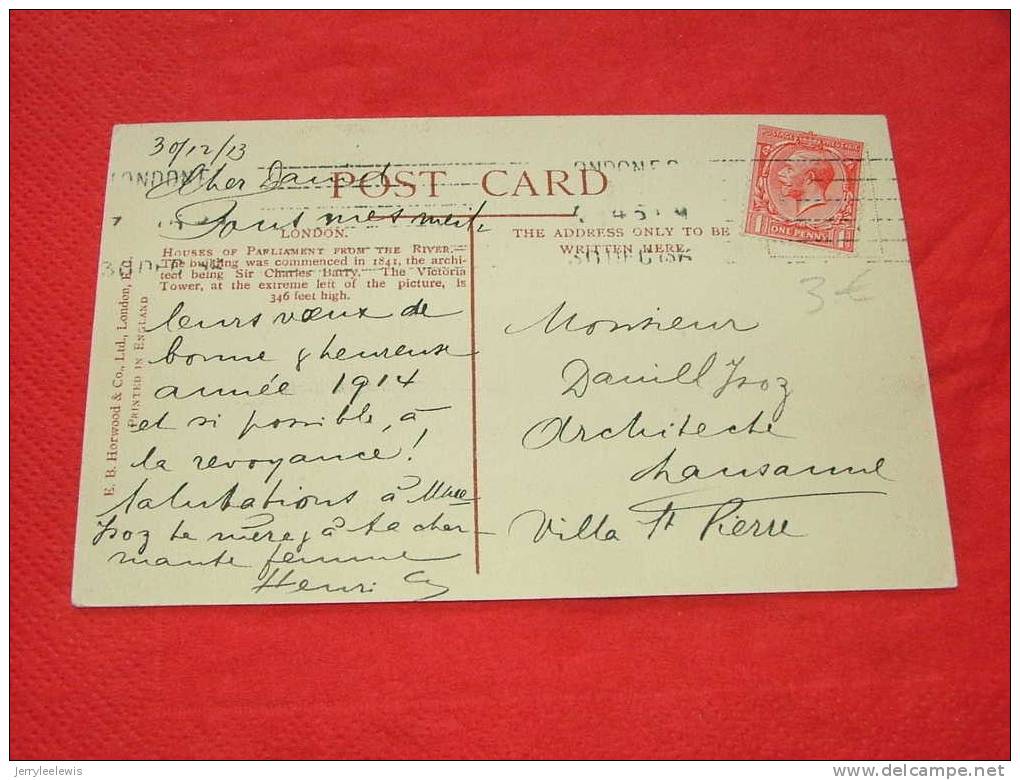 30/12/13
Cher Daniel
POST CARD
Tous mes meil-
LONDON.
HOUSES OF PARLIAMENT FROM THE RIVER.—
The building was commenced in 1841, the archi-
tect being Sir Charles Barry. The Victoria
Tower, at the extreme left of the picture, is
346 feet high.
leurs vœux de
bonne & heureuse
année 1914
et si possible, à
la revoyance!
Salutations à Mme
Isoz ta mère & à ta char-
mante femme
Henri
E. B. Horwood & Co., Ltd., London,
PRINTED IN ENGLAND
LONDON
30 DEC
LONDON
.45 PM
30 DEC 13
POSTAGE
ONE PENNY
1
1
THE ADDRESS ONLY TO BE
WRITTEN HERE.
3€
Monsieur
Daniel Isoz
Architecte
Lausanne
Villa St Pierre
jerryleelewis
delcampe.net